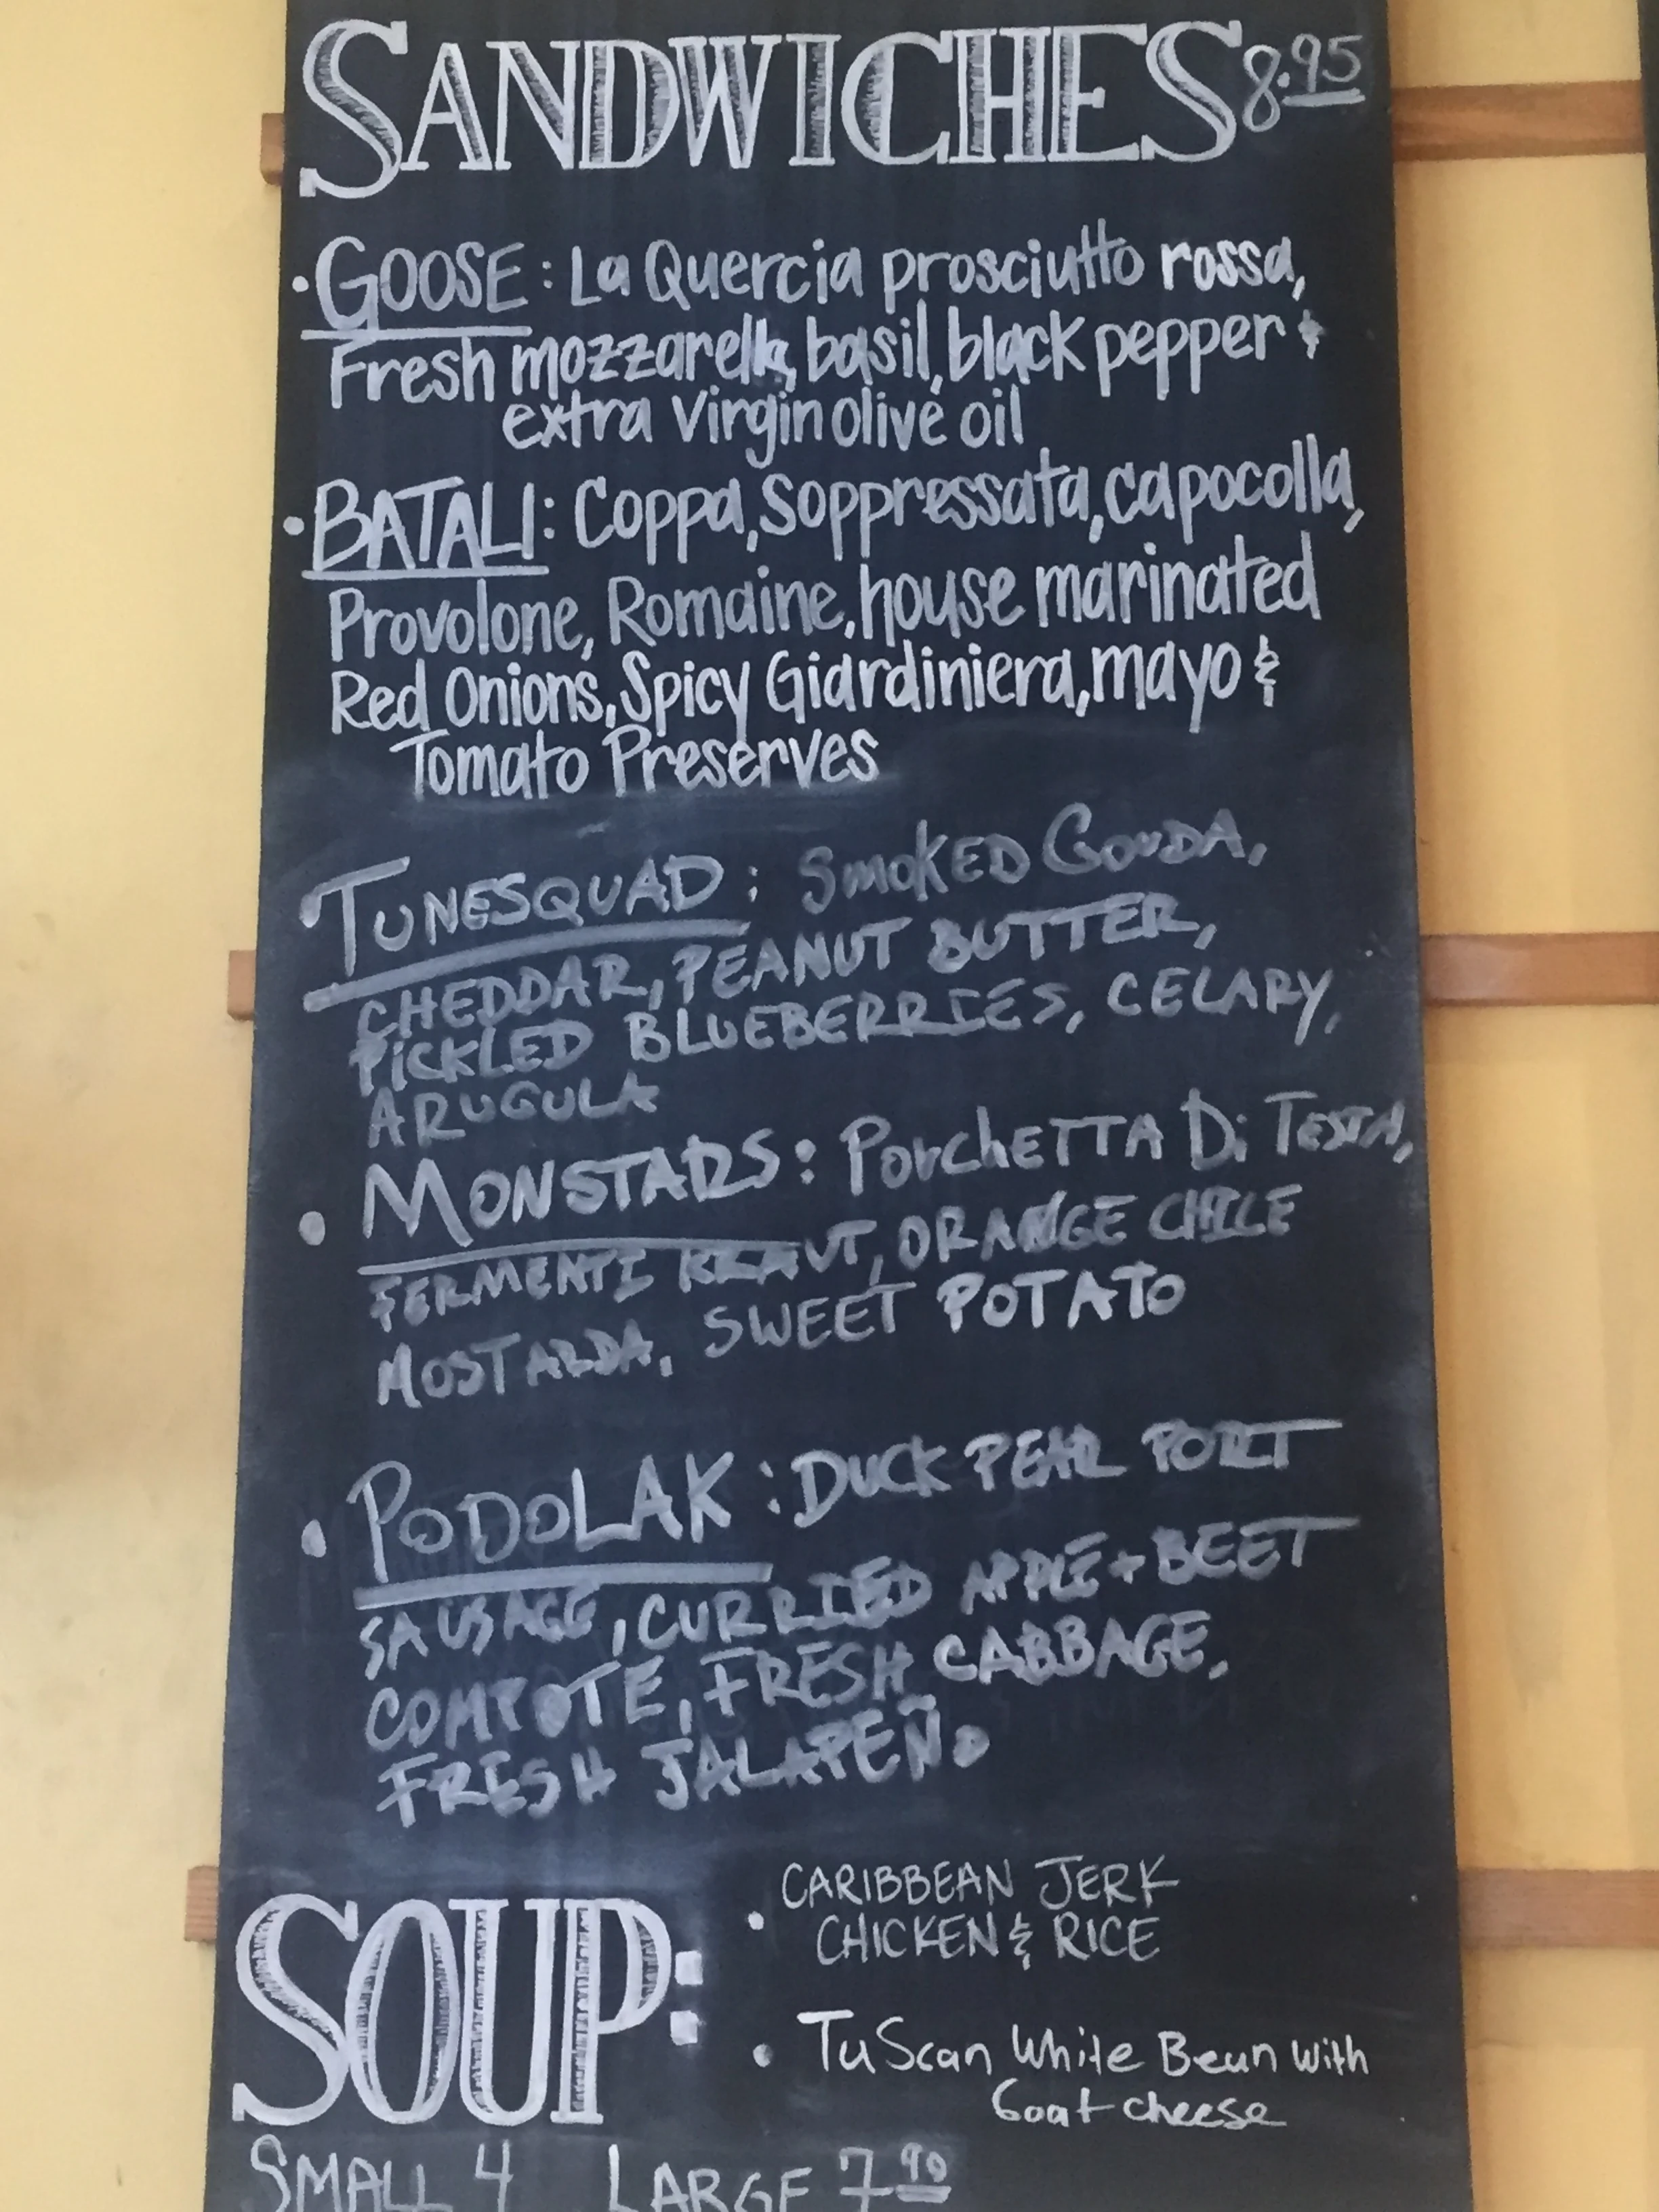 SANDWICHES 8.95
• GOOSE: La Quercia prosciutto rossa,
Fresh mozzarella, basil, black pepper &
extra Virgin olive oil
• BATALI: Coppa, Soppressata, capocolla,
Provolone, Romaine, house marinated
Red Onions, Spicy Giardiniera, mayo &
Tomato Preserves
• TUNESQUAD: SMOKED GOUDA,
CHEDDAR, PEANUT BUTTER,
PICKLED BLUEBERRIES, CELARY,
ARUGULA
• MONSTARS: PORCHETTA Di TESTA,
FERMENTI KRAUT, ORANGE CHILE
MOSTARDA, SWEET POTATO
• PODOLAK: DUCK PEAR PORT
SAUSAGE, CURRIED APPLE + BEET
COMPOTE, FRESH CABBAGE,
FRESH JALAPEÑO
SOUP:
• CARIBBEAN JERK
CHICKEN & RICE
• TuScan White Bean With
Goat cheese
SMALL 4 LARGE 7.90